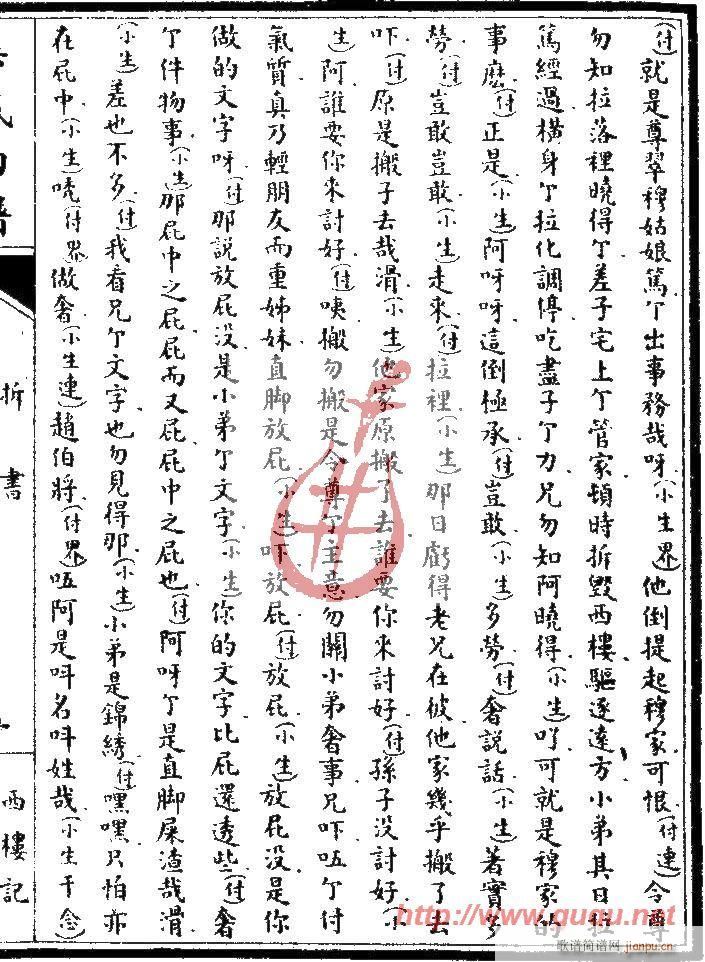 (付)就是尊翠穆姑娘篤个出事務哉呀(小生界)他倒提起穆家可恨(付連)令尊
勿知拉落裡曉得个差子宅上个管家頓時拆毀西樓驅逐遠方小弟其日拉
篤經過橫身个拉化調停吃盡子个力兄勿知阿曉得(小生)吖可就是穆家的
事麽(付)正是(小生)阿呀呀這倒極承(付)豈敢(小生)多勞(付)奢説話(小生)著實多
勞(付)豈敢豈敢(小生)走來(付)拉裡(小生)那日虧得老兄在彼他家幾乎搬了去
吓(付)原是搬子去哉滑(小生)他家原搬了去誰要你來討好(付)孫子沒討好(小
生)阿誰要你來討好(付)咦搬勿搬是令尊个主意勿關小弟奢事兄吓㕶个付
氣質真乃輕朋友而重姊妹直脚放屁(小生)吓放屁(付)放屁(小生)放屁沒是你
做的文字呀(付)那說放屁沒是小弟个文字(小生)你的文字比屁還透些(付)奢
个件物事(小生)那屁中之屁屁而又屁屁中之屁也(付)阿呀个是直脚屎渣哉滑
(小生)差也不多(付)我看兄个文字也勿見得那(小生)小弟是錦綉(付)嘿嘿只怕亦
在屁中(小生)唗(付界)做奢(小生連)趙伯將(付界)㕶阿是呌名呌姓哉(小生干念)
拆書
西樓記
http://www.ququ.net
歌谱简谱网
jianpu.cn